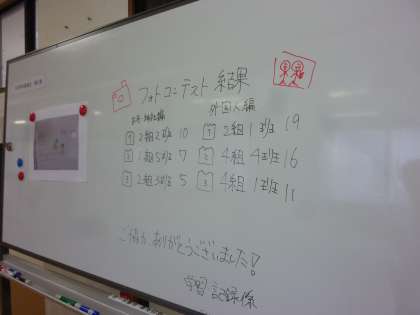 フォトコンテスト 結果
外国人編
1 2組2班 10
1 2組1班 19
2 1組5班 7
2 4組4班 16
3 2組3班 5
3 4組1班 11
ご協力、ありがとうございました!
学習記録係